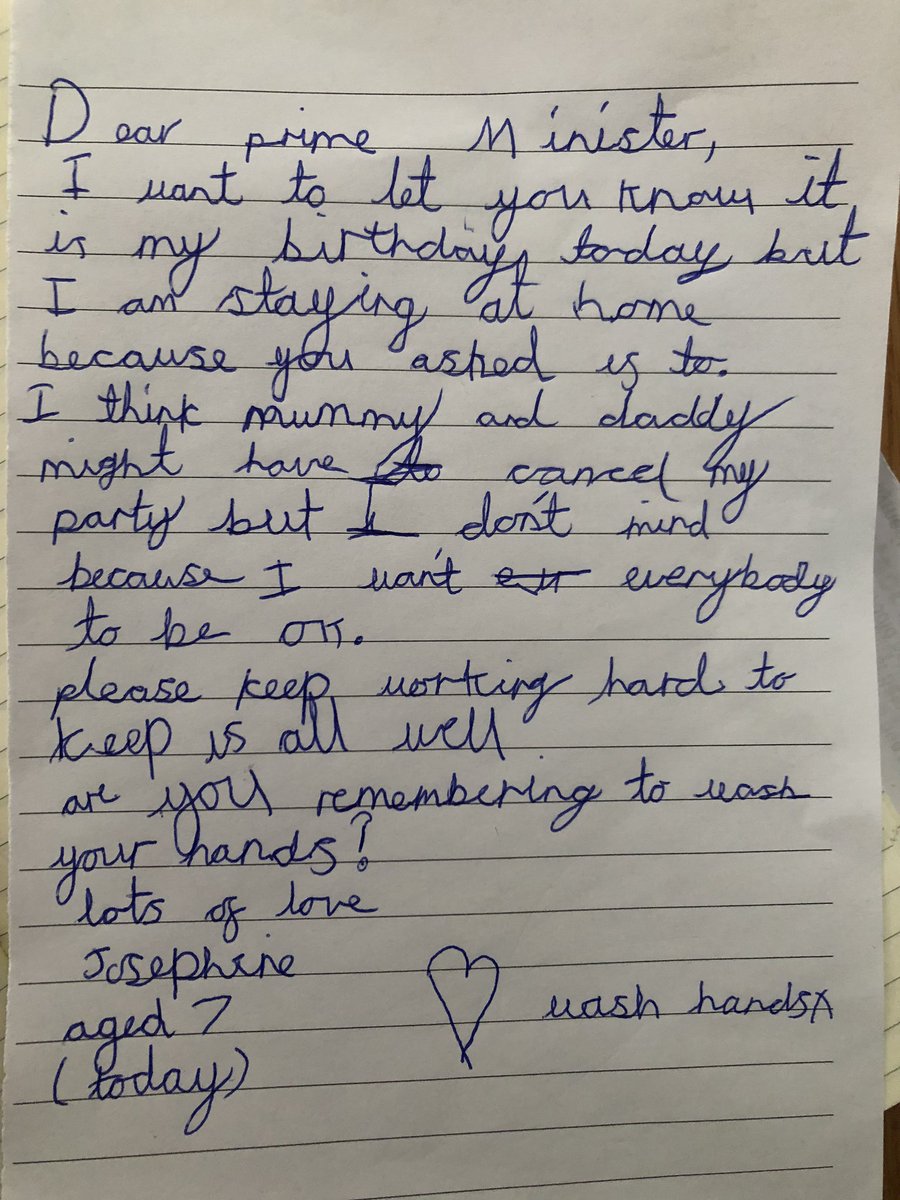 Dear prime Minister,
I want to let you know it
is my birthday today but
I am staying at home
because you asked us to.
I think mummy and daddy
might have to cancel my
party but I don't mind
because I want eur everybody
to be ok.
please keep working hard to
keep us all well
are you remembering to wash
your hands?
lots of love
Josephine
aged 7
wash handsx
(today)